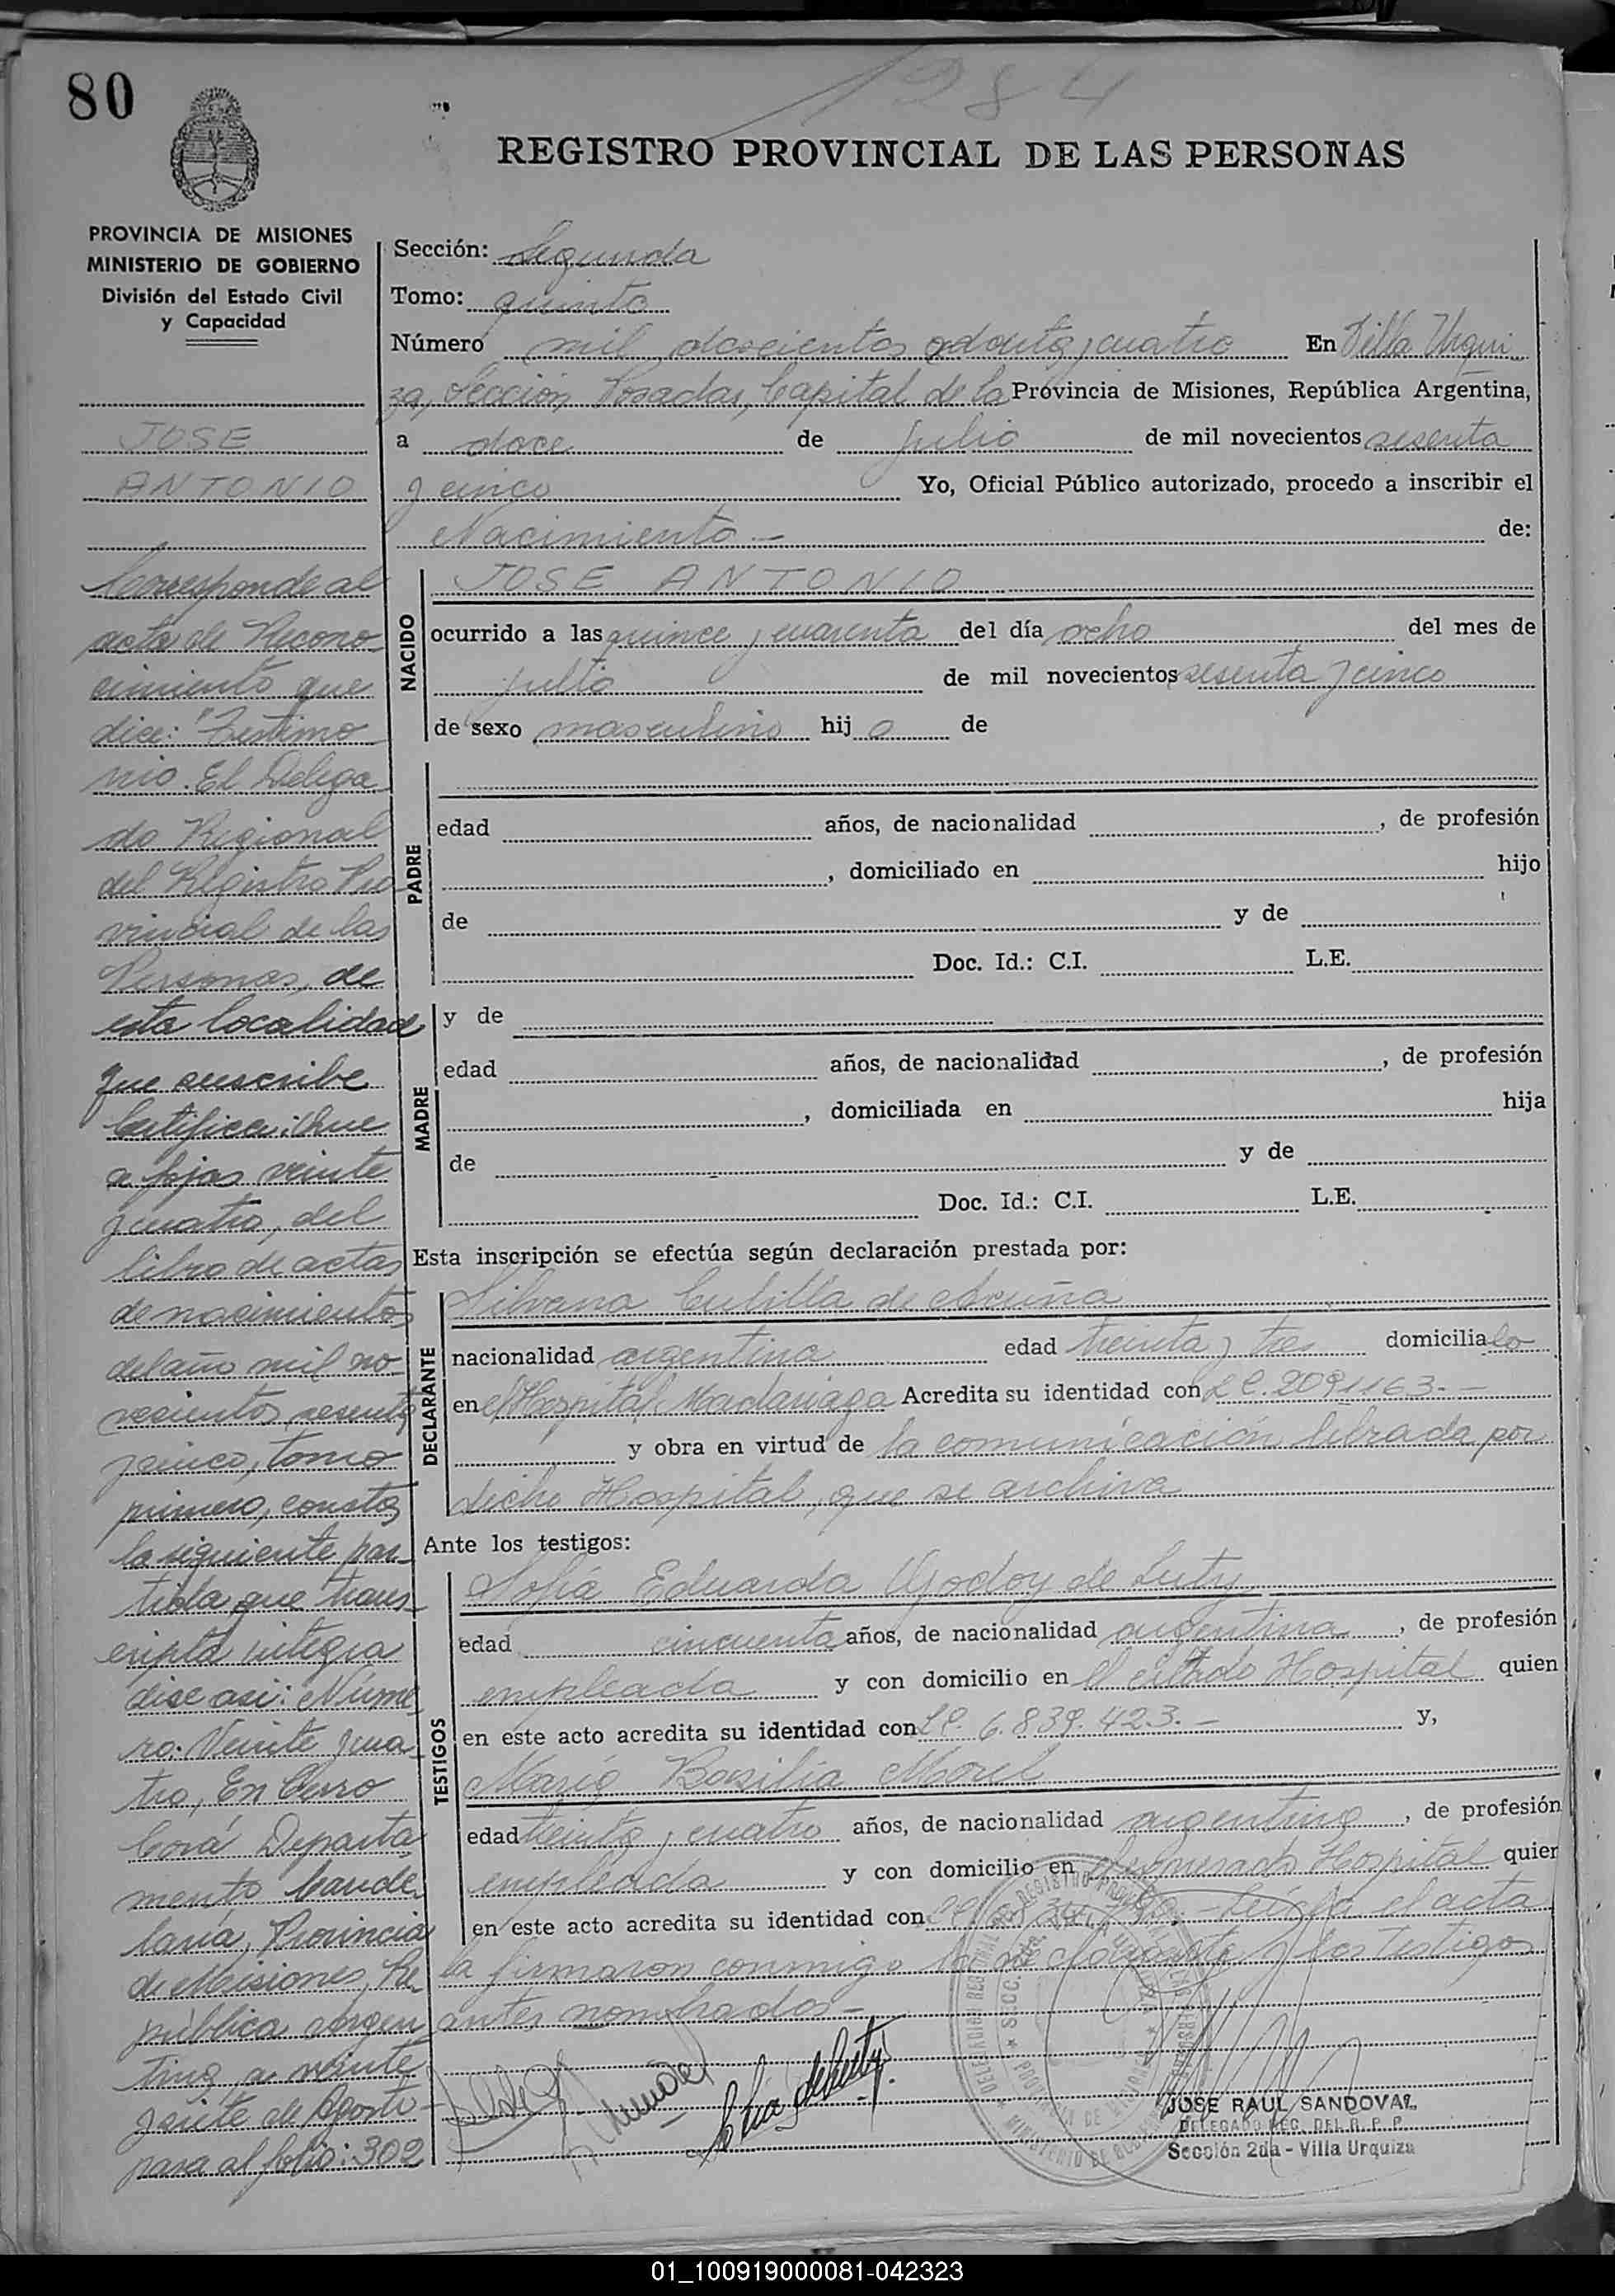 80
1284
REGISTRO PROVINCIAL DE LAS PERSONAS
PROVINCIA DE MISIONES
MINISTERIO DE GOBIERNO
División del Estado Civil
y Capacidad
JOSE
ANTONIO
Corresponde al
acta de Recono-
cimiento que
dice: "Testimo
nio. El Delega
do Regional
del Registro Pro
vincial de las
Personas, de
esta localidad
que suscribe
Certifica: Que
a fojas veinte
y cuatro, del
libro de actas
de nacimientos
del año mil no-
vecientos sesenta
y cinco, tomo
primero, consta
la siguiente par-
tida que trans-
cripta integra
dice asi: Núme
ro: Veinte y cua
tro, En Cerro
Corá Departa
mento Cande
laria, Provincia
de Misiones, Re
pública Argen
tina, a veinte
y siete de Agosto-
pasa al folio: 302
Sección: Segunda
Tomo: quinto
Número mil doscientos ochenta y cuatro En Villa Urqui
za, Sección Posadas, Capital de la Provincia de Misiones, República Argentina,
a doce de julio de mil novecientos sesenta
y cinco Yo, Oficial Público autorizado, procedo a inscribir el
Nacimiento.- de:
NACIDO
JOSE ANTONIO
ocurrido a las quince y cuarenta del día ocho del mes de
julio de mil novecientos sesenta y cinco
de sexo masculino hij o de
PADRE
edad años, de nacionalidad , de profesión
, domiciliado en hijo
de y de
Doc. Id.: C.I. L.E.
MADRE
y de
edad años, de nacionalidad , de profesión
, domiciliada en hija
de y de
Doc. Id.: C.I. L.E.
Esta inscripción se efectúa según declaración prestada por:
DECLARANTE
Silvana Cubilla de Acuña
nacionalidad argentina edad treinta y tres domicilia
en el Hospital Madariaga Acredita su identidad con L C. 2091163.-
y obra en virtud de la comunicación librada por
dicho Hospital, que se archiva
Ante los testigos:
TESTIGOS
Sofía Eduarda Godoy de
edad cincuenta años, de nacionalidad argentina , de profesión
empleada y con domicilio en el citado Hospital quien
en este acto acredita su identidad con 6.839.423.- y,
María Basilia Morel
edad treinta y cuatro años, de nacionalidad argentina , de profesión
empleada y con domicilio en el Hospital quien
en este acto acredita su identidad con Leída el acta
la firmaron conmigo la declarante y los testigos
antes nombrados-
JOSE RAUL SANDOVAL
DELEGADO REG. DEL R. P. P.
Sección 2da - Villa Urquiza
01_100919000081-042323